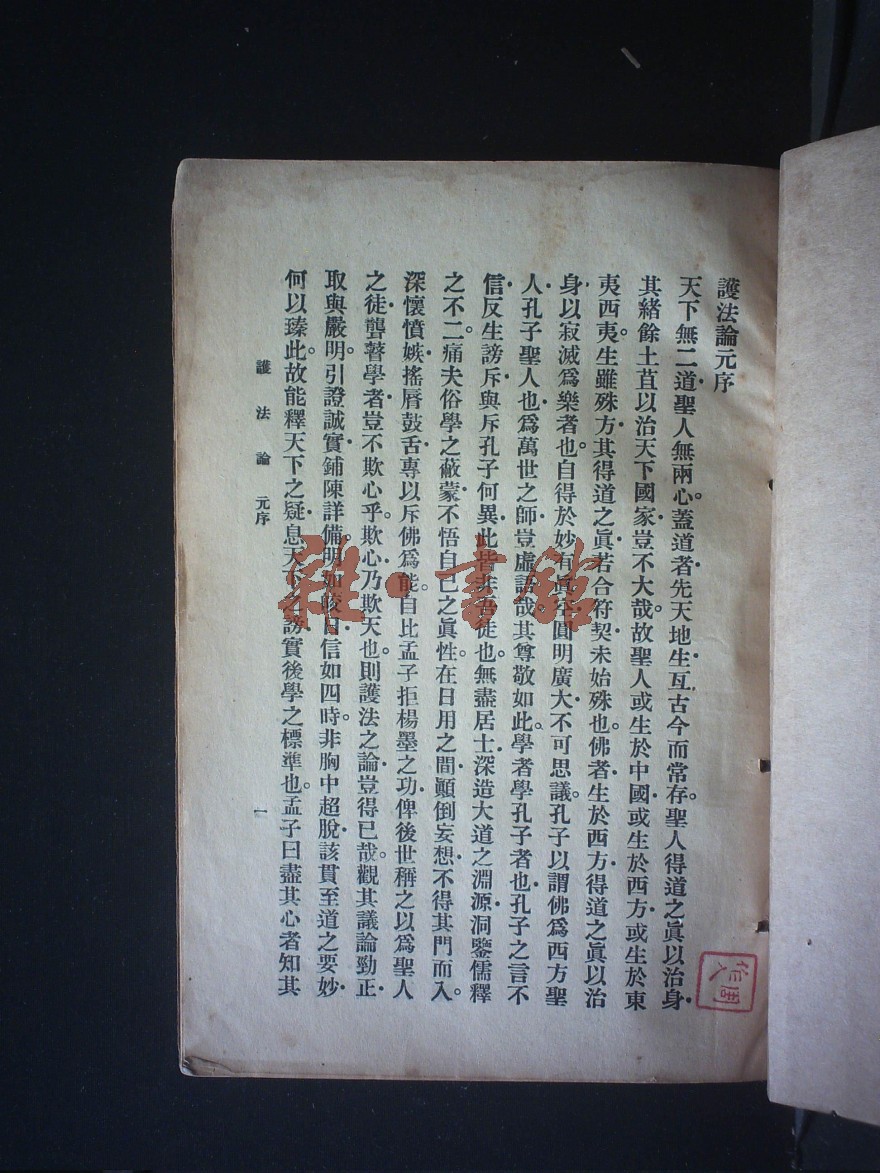 護法論元序
天下無二道・聖人無兩心。蓋道者・先天地生・亙古今而常存・聖人得道之眞以治身・
其緖餘土苴以治天下國家・豈不大哉。故聖人或生於中國・或生於西方・或生於東
夷西夷。生雖殊方・其得道之眞・若合符契・未始殊也。佛者・生於西方・得道之眞以治
身・以寂滅爲樂者也・自得於妙有眞空・圓明廣大・不可思議。孔子以謂佛爲西方聖
人・孔子聖人也・爲萬世之師・豈虛語哉・其尊敬如此。學者學孔子者也・孔子之言不
信・反生謗斥・與斥孔子何異・此皆非吾徒也。無盡居士・深造大道之淵源・洞鑒儒釋
之不二・痛夫俗學之蔽蒙・不悟自己之眞性・在日用之間・顚倒妄想・不得其門而入。
深懷憤嫉・搖脣鼓舌・專以斥佛爲能・自比孟子拒楊墨之功・俾後世稱之以爲聖人
之徒・聾瞽學者・豈不欺心乎。欺心乃欺天也・則護法之論・豈得已哉。觀其議論勁正・
取與嚴明。引證誠實・鋪陳詳備。明如皎日・信如四時。非胸中超脫・該貫至道之要妙・
何以臻此。故能釋天下之疑・息天下之謗・實後學之標準也。孟子曰盡其心者・知其
護法論 元序
一
雜・書館
周作人